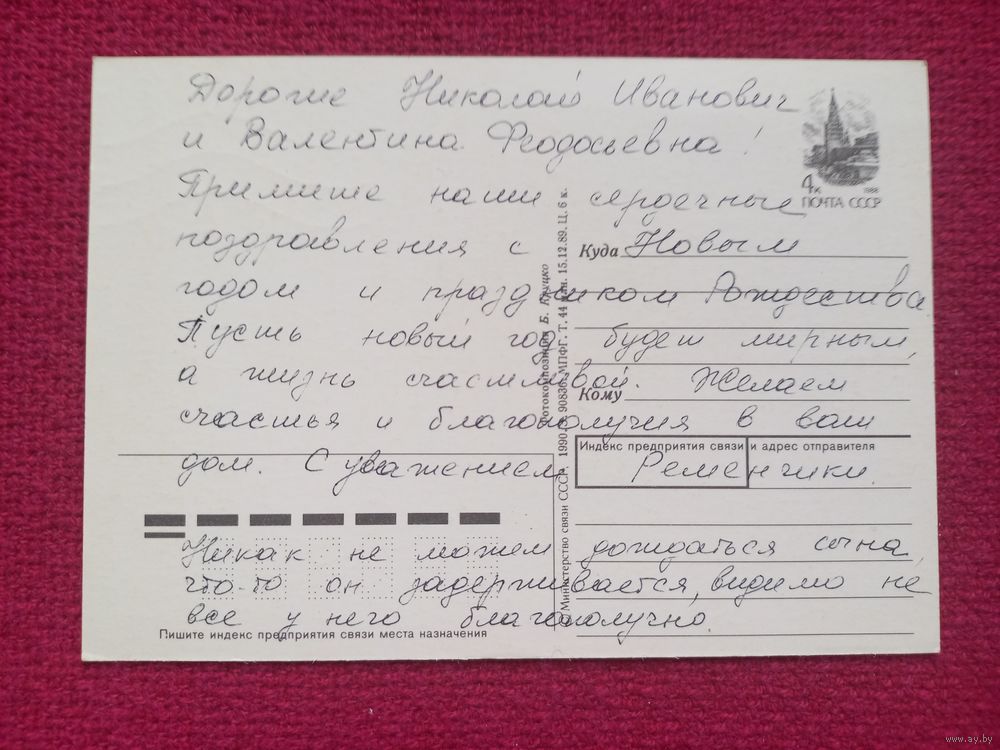 Дорогие Николай Иванович
и Валентина Феодосьевна!
Примите наши сердечные
поздравления с Новым
годом и праздником Рождества.
Пусть новый год будет мирным,
а жизнь счастливой. Желаем
счастья и благополучия в ваш
дом. С уважением Ременчики.
Никак не можем дождаться сына,
что-то он задерживается, видимо не
все у него благополучно.
4к 1988
ПОЧТА СССР
Куда
Кому
Индекс предприятия связи и адрес отправителя
Пишите индекс предприятия связи места назначения
Фотокомпозиция Б. Круцко
Министерство связи СССР. 1990. З. 90836. МПФГ. Т. 44 млн. 15.12.89. Ц. 6 к.
www.ay.by